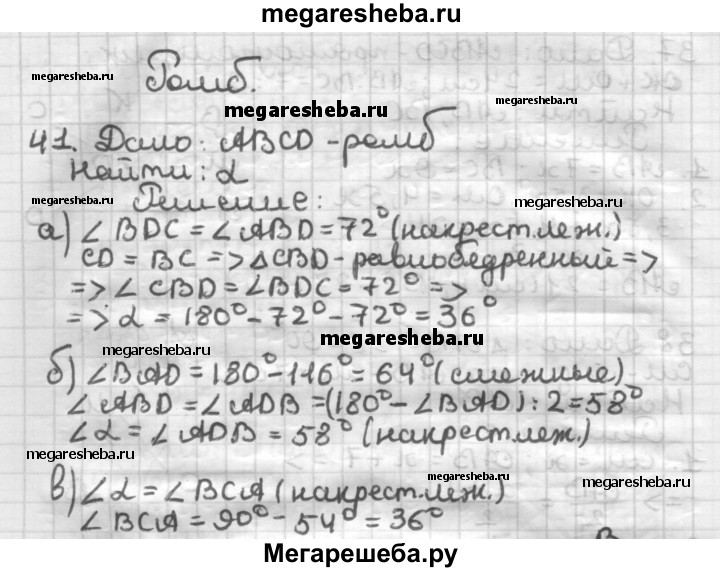 megaresheba.ru
megaresheba.ru
megaresheba.ru
Ромб.
megaresheba.ru
41. Дано: ABCD - ромб
Найти: α
megaresheba.ru
Решение:
megaresheba.ru
а) ∠ BDC = ∠ ABD = 72° (накрест.леж.)
CD = BC => △CBD - равнобедренный =>
=> ∠ CBD = ∠BDC = 72° =>
=> α = 180° - 72° - 72° = 36°
megaresheba.ru
megaresheba.ru
б) ∠BAD = 180° - 116° = 64° (смежные)
∠ ABD = ∠ ADB = (180° - ∠BAD) : 2 = 58°
∠α = ∠ ADB = 58° (накрест.леж.)
megaresheba.ru
megaresheba.ru
в) ∠α = ∠BCA (накрест.леж.)
∠ BCA = 90° - 54° = 36°
megaresheba.ru
megaresheba.ru
Мегарешеба.ру